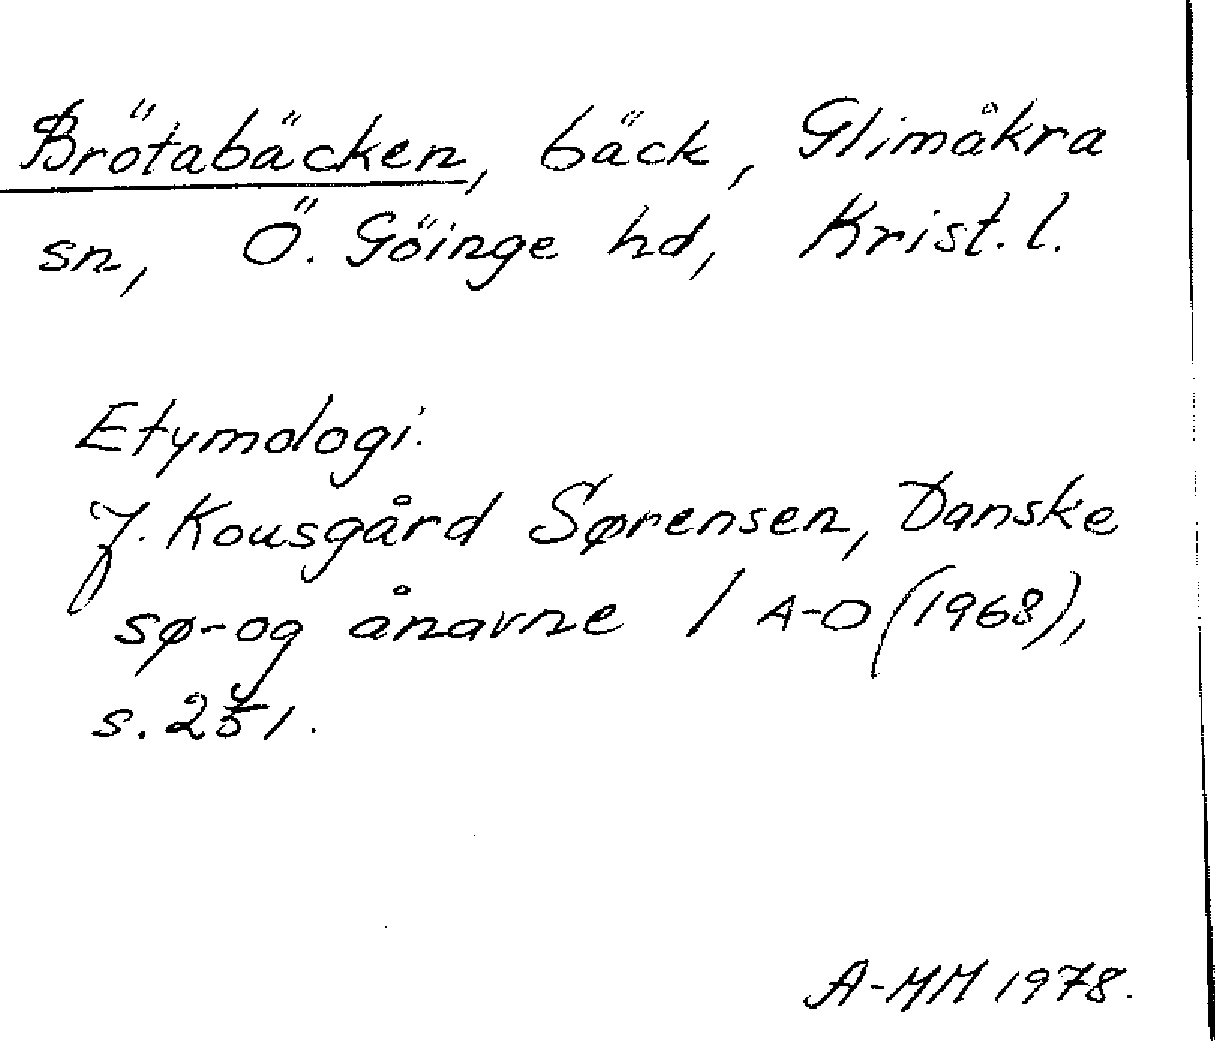 Brötabäcken, bäck, Glimåkra
sn, Ö. Göinge hd, Krist. l.
Etymologi.
J. Kousgård Sørensen, Danske
sø-og ånavne 1 A-O (1968),
s. 251.
A-MM 1978.